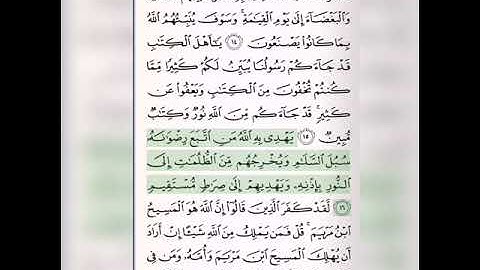 وَٱلْبَغْضَآءَ إِلَىٰ يَوْمِ ٱلْقِيَٰمَةِ ۚ وَسَوْفَ يُنَبِّئُهُمُ ٱللَّهُ
بِمَا كَانُوا۟ يَصْنَعُونَ ١٤ يَٰٓأَهْلَ ٱلْكِتَٰبِ
قَدْ جَآءَكُمْ رَسُولُنَا يُبَيِّنُ لَكُمْ كَثِيرًا مِّمَّا
كُنتُمْ تُخْفُونَ مِنَ ٱلْكِتَٰبِ وَيَعْفُوا۟ عَن
كَثِيرٍ ۚ قَدْ جَآءَكُم مِّنَ ٱللَّهِ نُورٌ وَكِتَٰبٌ
مُّبِينٌ ١٥ يَهْدِى بِهِ ٱللَّهُ مَنِ ٱتَّبَعَ رِضْوَٰنَهُۥ
سُبُلَ ٱلسَّلَٰمِ وَيُخْرِجُهُم مِّنَ ٱلظُّلُمَٰتِ إِلَى
ٱلنُّورِ بِإِذْنِهِۦ وَيَهْدِيهِمْ إِلَىٰ صِرَٰطٍ مُّسْتَقِيمٍ
١٦ لَّقَدْ كَفَرَ ٱلَّذِينَ قَالُوٓا۟ إِنَّ ٱللَّهَ هُوَ ٱلْمَسِيحُ
ٱبْنُ مَرْيَمَ ۚ قُلْ فَمَن يَمْلِكُ مِنَ ٱللَّهِ شَيْـًٔا إِنْ أَرَادَ
أَن يُهْلِكَ ٱلْمَسِيحَ ٱبْنَ مَرْيَمَ وَأُمَّهُۥ وَمَن فِى